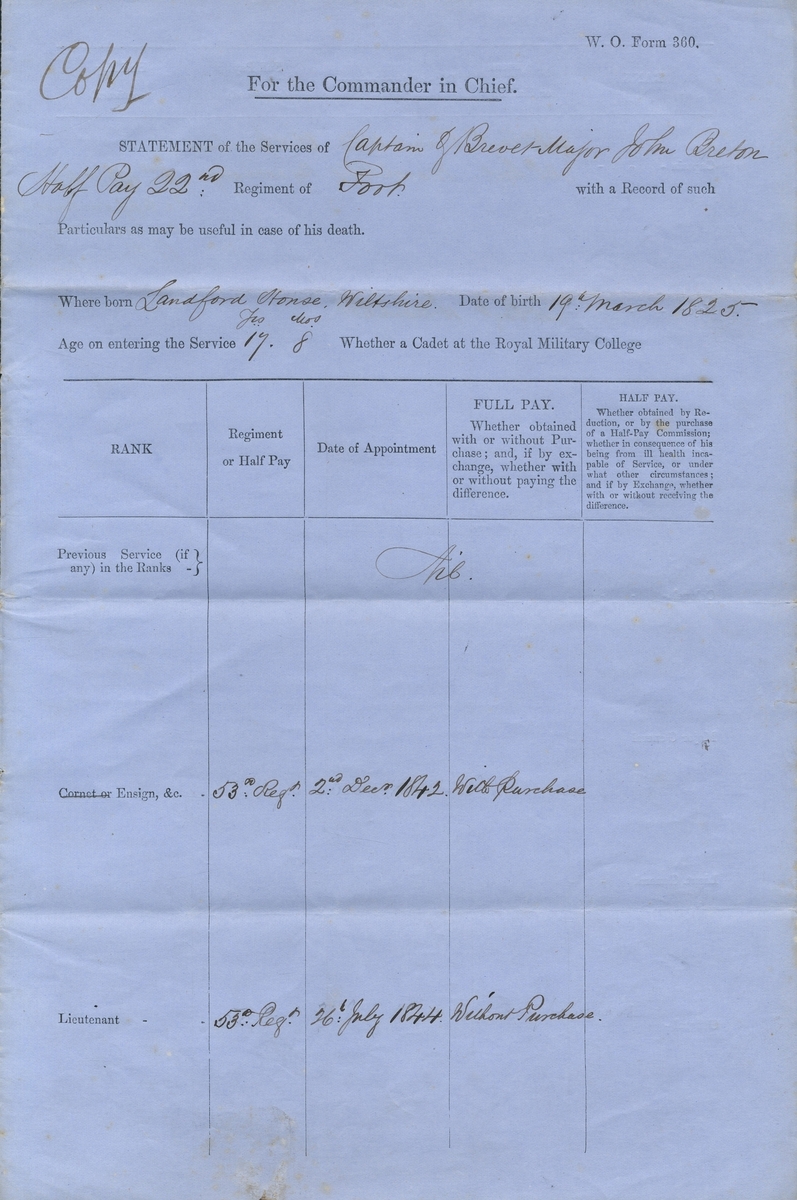 W. O. Form 360.
Copy
For the Commander in Chief.
STATEMENT of the Services of Captain & Brevet Major John Breton
Half Pay 22nd Regiment of Foot. with a Record of such
Particulars as may be useful in case of his death.
Where born Landford House, Wiltshire. Date of birth 19th March 1825.
Yrs Mos
Age on entering the Service 17. 8 Whether a Cadet at the Royal Military College
RANK
Regiment
or Half Pay
Date of Appointment
FULL PAY.
Whether obtained
with or without Pur-
chase; and, if by ex-
change, whether with
or without paying the
difference.
HALF PAY.
Whether obtained by Re-
duction, or by the purchase
of a Half-Pay Commission;
whether in consequence of his
being from ill health inca-
pable of Service, or under
what other circumstances;
and if by Exchange, whether
with or without receiving the
difference.
Previous Service (if
any) in the Ranks -} Nil.
Cornet or Ensign, &c. - 53rd Regt. 2nd Decr. 1842. With Purchase
Lieutenant - - 53rd Regt. 26th July 1844. Without Purchase.